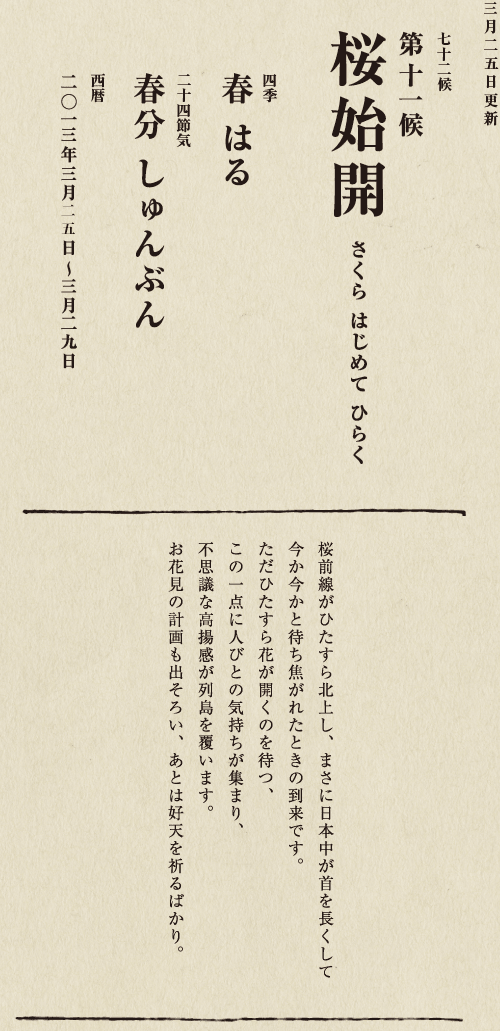 三月二五日更新
七十二候
第十一候
桜始開 さくら はじめて ひらく
四季
春 はる
二十四節気
春分 しゅんぶん
西暦
二〇一三年三月二五日〜三月二九日
桜前線がひたすら北上し、まさに日本中が首を長くして
今か今かと待ち焦がれたときの到来です。
ただひたすら花が開くのを待つ、
この一点に人びとの気持ちが集まり、
不思議な高揚感が列島を覆います。
お花見の計画も出そろい、あとは好天を祈るばかり。